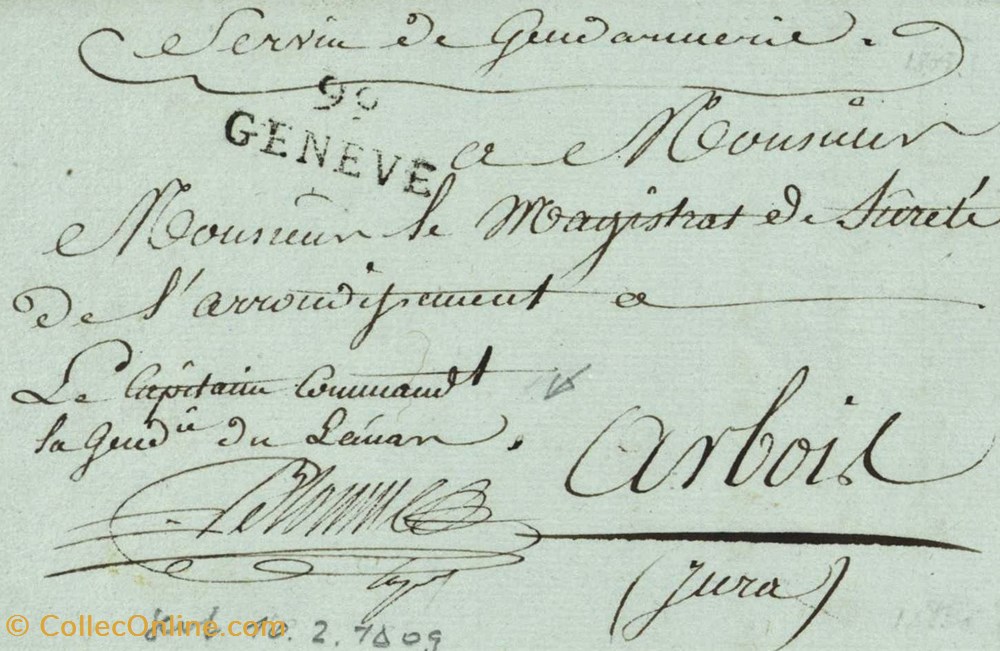 Service de Gendarmerie.
99
GENEVE
a Monsieur
Monsieur le Magistrat de Sureté
de l'arrondissement a
Le Capitaine Command^t
la Gend^ie du Léman.
Arbois
(Jura)
10. 2. 1809
© CollecOnline.com